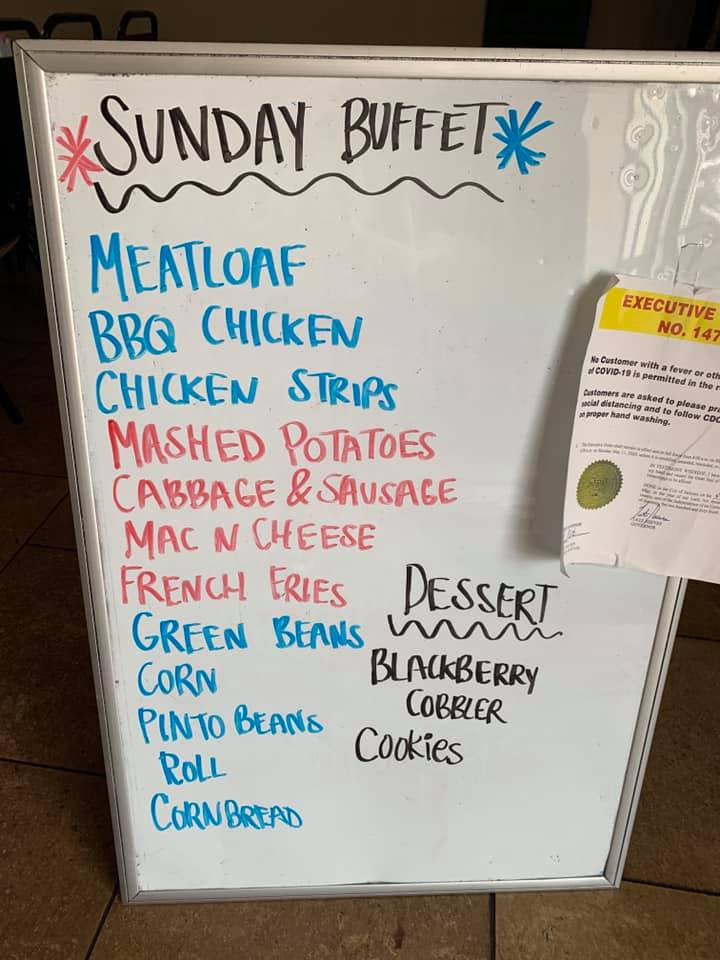 SUNDAY BUFFET
MEATLOAF
BBQ CHICKEN
CHICKEN STRIPS
MASHED POTATOES
CABBAGE & SAUSAGE
MAC N CHEESE
FRENCH FRIES
GREEN BEANS
CORN
PINTO BEANS
ROLL
CORNBREAD
DESSERT
BLACKBERRY
COBBLER
Cookies
EXECUTIVE
NO. 147
No Customer with a fever or
of COVID-19 is permitted in the
Customers are asked to please
social distancing and to follow CDC
proper hand washing.
TATE REEVES
GOVERNOR